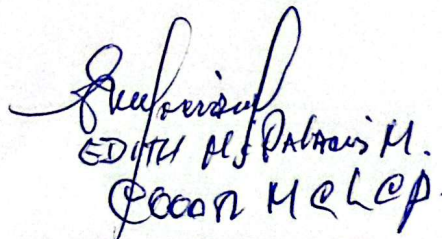 EDITH M. PALACIOS M.
COOOR MCLCP.